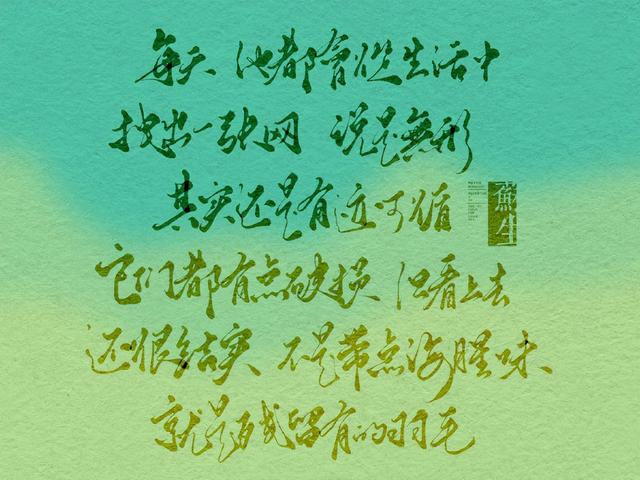 每天 他都會從生活中
出一张网 说是無形
其实还是有迹可循
蘇生
它们都有点破损 但看上去
还很结实 不是带点海腥味
就是残留有的羽毛